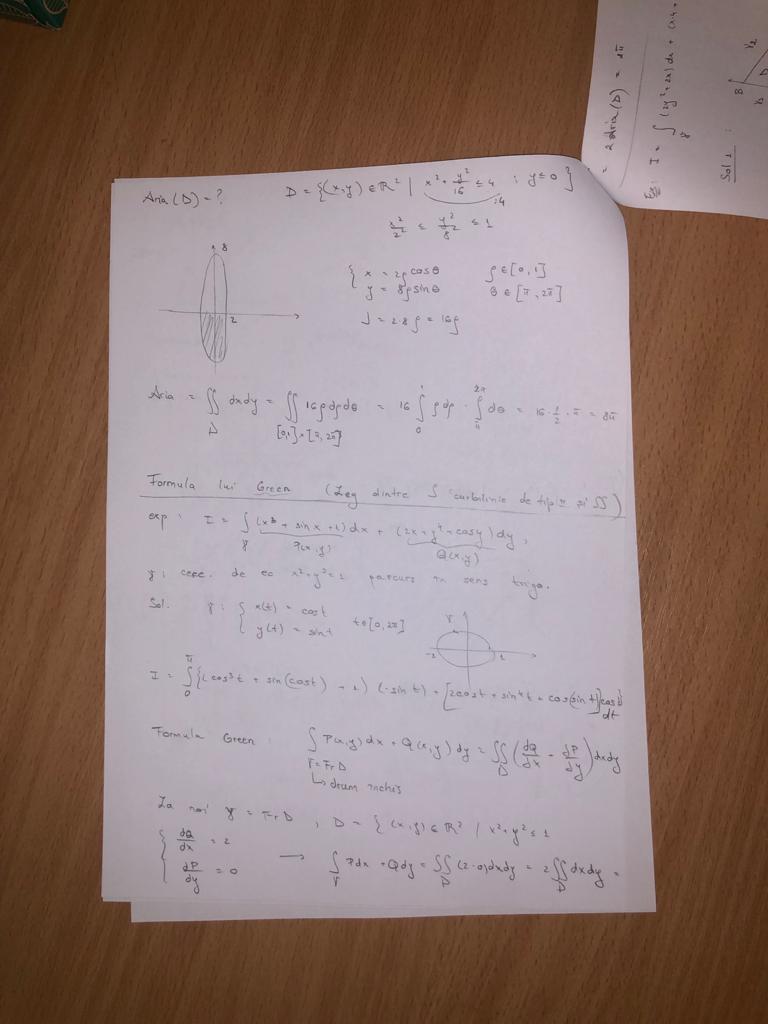 Aria (D) = ? D = {(x,y) ∈ ℝ² | x² + y²/16 ≤ 4 ; y ≤ 0}
:4
x²/2² ≤ y²/8² ≤ 1
8
2
{ x = 2ρ cosθ ρ ∈ [0,1]
y = 8ρ sinθ θ ∈ [π, 2π]
J = 2·8 ρ = 16ρ
Aria = ∬_D dxdy = ∬_{[0,1]×[π,2π]} 16ρ dρ dθ = 16 ∫_0^1 ρ dρ · ∫_π^{2π} dθ = 16 · 1/2 · π = 8π
Formula lui Green (Leg dintre ∫ curbilinie de tip II si ∬)
exp: I = ∫_γ (x³ + sin x + 1) dx + (2x + y⁴ + cos y) dy,
P(x,y) Q(x,y)
γ: cerc. de ec x² + y² = 1 parcurs in sens trigo.
Sol. γ: { x(t) = cos t
y(t) = sin t t ∈ [0, 2π]
γ
-1 1
I = ∫_0^π {(cos³t + sin(cos t) + 1) (-sin t) + [2cos t + sin⁴t + cos(sin t)] cos t} dt
Formula Green: ∫_{γ=Fr D} P(x,y) dx + Q(x,y) dy = ∬_D (dQ/dx - dP/dy) dxdy
↳ drum inchis
La noi γ = Fr D , D = {(x,y) ∈ ℝ² | x² + y² ≤ 1
{ dQ/dx = 2
dP/dy = 0 → ∫_γ Pdx + Qdy = ∬_D (2-0) dxdy = 2 ∬_D dxdy =
= 2 Aria (D) = 2π
Ex: I = ∫_γ (2y² + 2x) dx + (x4 +
Sol 1 :
B
D
γ2